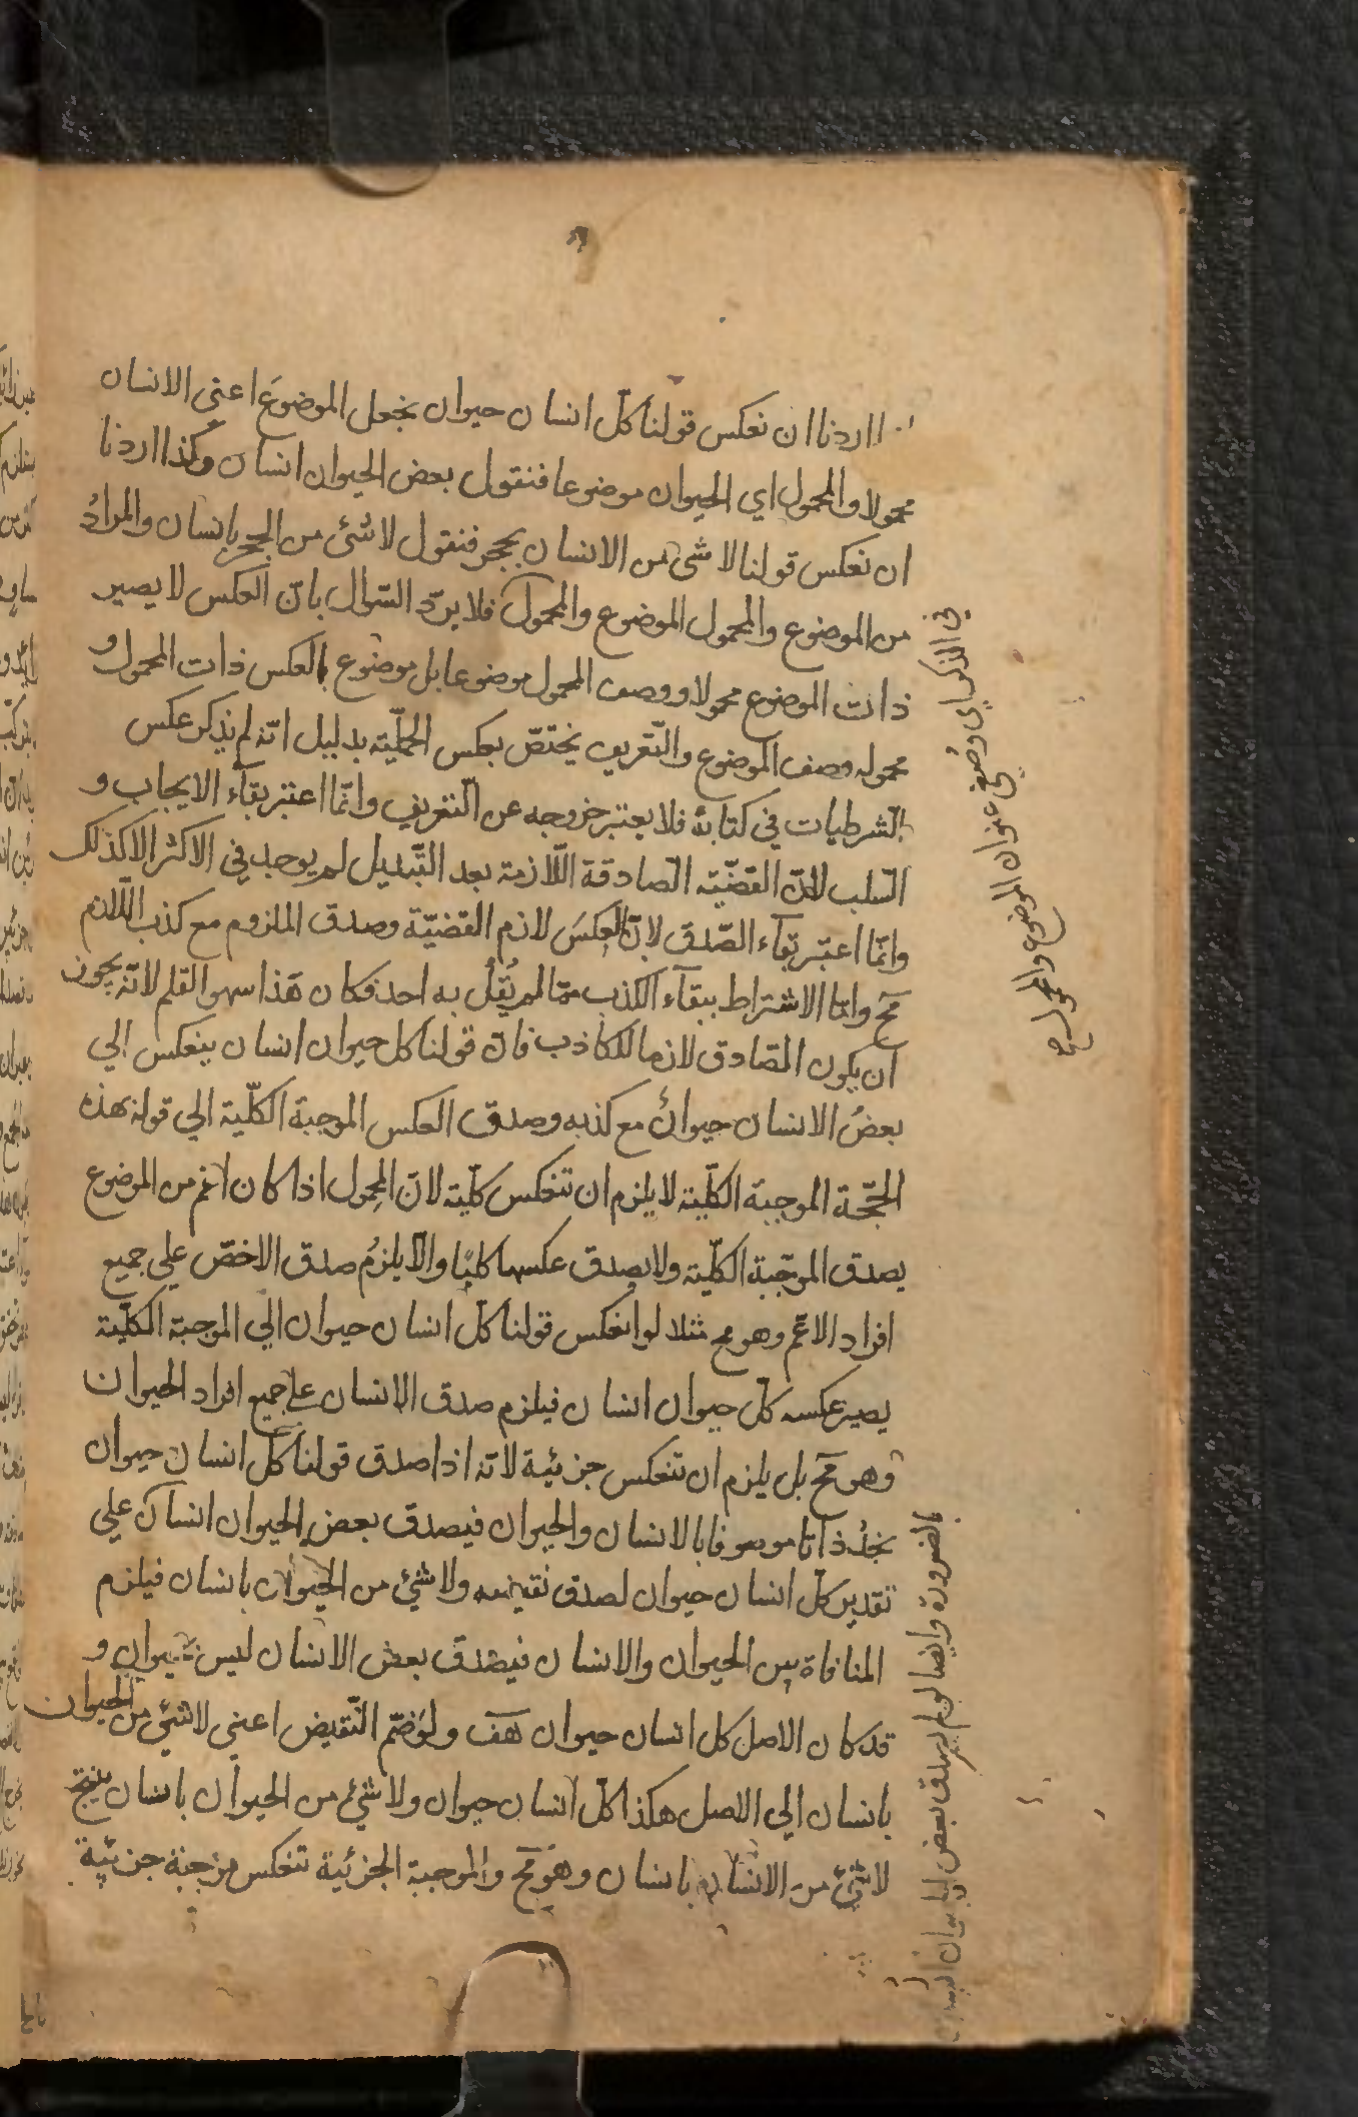 اردنا ان نعكس قولنا كلّ انسان حيوان نجعل الموضوعَ اعني الانسان
محمولا والمحمول اي الحيوان موضوعا فنقول بعض الحيوان انسان وكذا اردنا
ان نعكس قولنا لا شئ من الانسان بحجر فنقول لا شئ من الحجر بانسان والمرادُ
من الموضوع والمحمول الموضوع والمحمول فلا يردّ السّوال بانّ العكس لا يصير
ذات الموضوع محمولا ووصف المحمول موضوعا بل موضوع العكس ذات المحمول و
محموله وصف الموضوع والتّعريف يختصّ بعكس الحمليّة بدليل انّه لم يذكر عكس
الشرطيات في كتابه فلا يعتبر خروجه عن التّعريف وانّما اعتبر بقآء الايجاب و
السّلب لانّ القضيّة الصّادقة اللّازمة بعد التّبديل لم يوجد في الاكثر الا كذلك
وانّما اعتبر بقآء الصّدق لانّ العكسَ لازم القضيّة وصدق الملزوم مع كذب اللّازم
مح وامّا الاشتراط ببقآء الكذب ممّا لم يُقل به احد فكان هذا سهو القلم لانّه يجوز
ان يكون الصّادق لازما للكاذب فانّ قولنا كل حيوان انسان ينعكس الي
بعضُ الانسان حيوانٌ مع كذبه وصدق العكس الموجبة الكلّية الي قوله هذه
الحجّة الموجبة الكلّية لا يلزم ان تنعكس كلّية لانّ المحمول اذا كان اعم من الموضوع
يصدق الموجبة الكلّية ولا يصدق عكسها كليّا والّا يلزمُ صدق الاخصّ علي جميع
افراد الاعّم وهو مح مثلا لو انعكس قولنا كلّ انسان حيوان الي الموجبة الكلّية
يصير عكسه كلّ حيوان انسان فيلزم صدق الانسان علي جميع افراد الحيوان
وهو مح بل يلزم ان تنعكس جزئية لانّه اذا صدق قولنا كلّ انسان حيوان
نجدُ ذاتا موصوفا بالانسان والحيوان فيصدق بعض الحيوان انسان علي
تقدير كلّ انسان حيوان لصدق نقيضه ولا شئ من الحيوان بانسان فيلزم
المنافاة بين الحيوان والانسان فيصدق بعض الانسان ليس بحيوان و
قد كان الاصل كل انسان حيوان هف ولو ضمّ النّقيض اعني لا شئ من الحيوان
بانسان الي الاصل هكذا كلّ انسان حيوان ولا شئ من الحيوان بانسان ينتج
لا شئ من الانسان بانسان وهو مح والموجبة الجزئية تنعكس موجبة جزئية
في الذكر اي وصفي عنوان الموضوع والمحمول صح
بالضرورة وايضا لو لم يصدق بعض الحيوان انسان